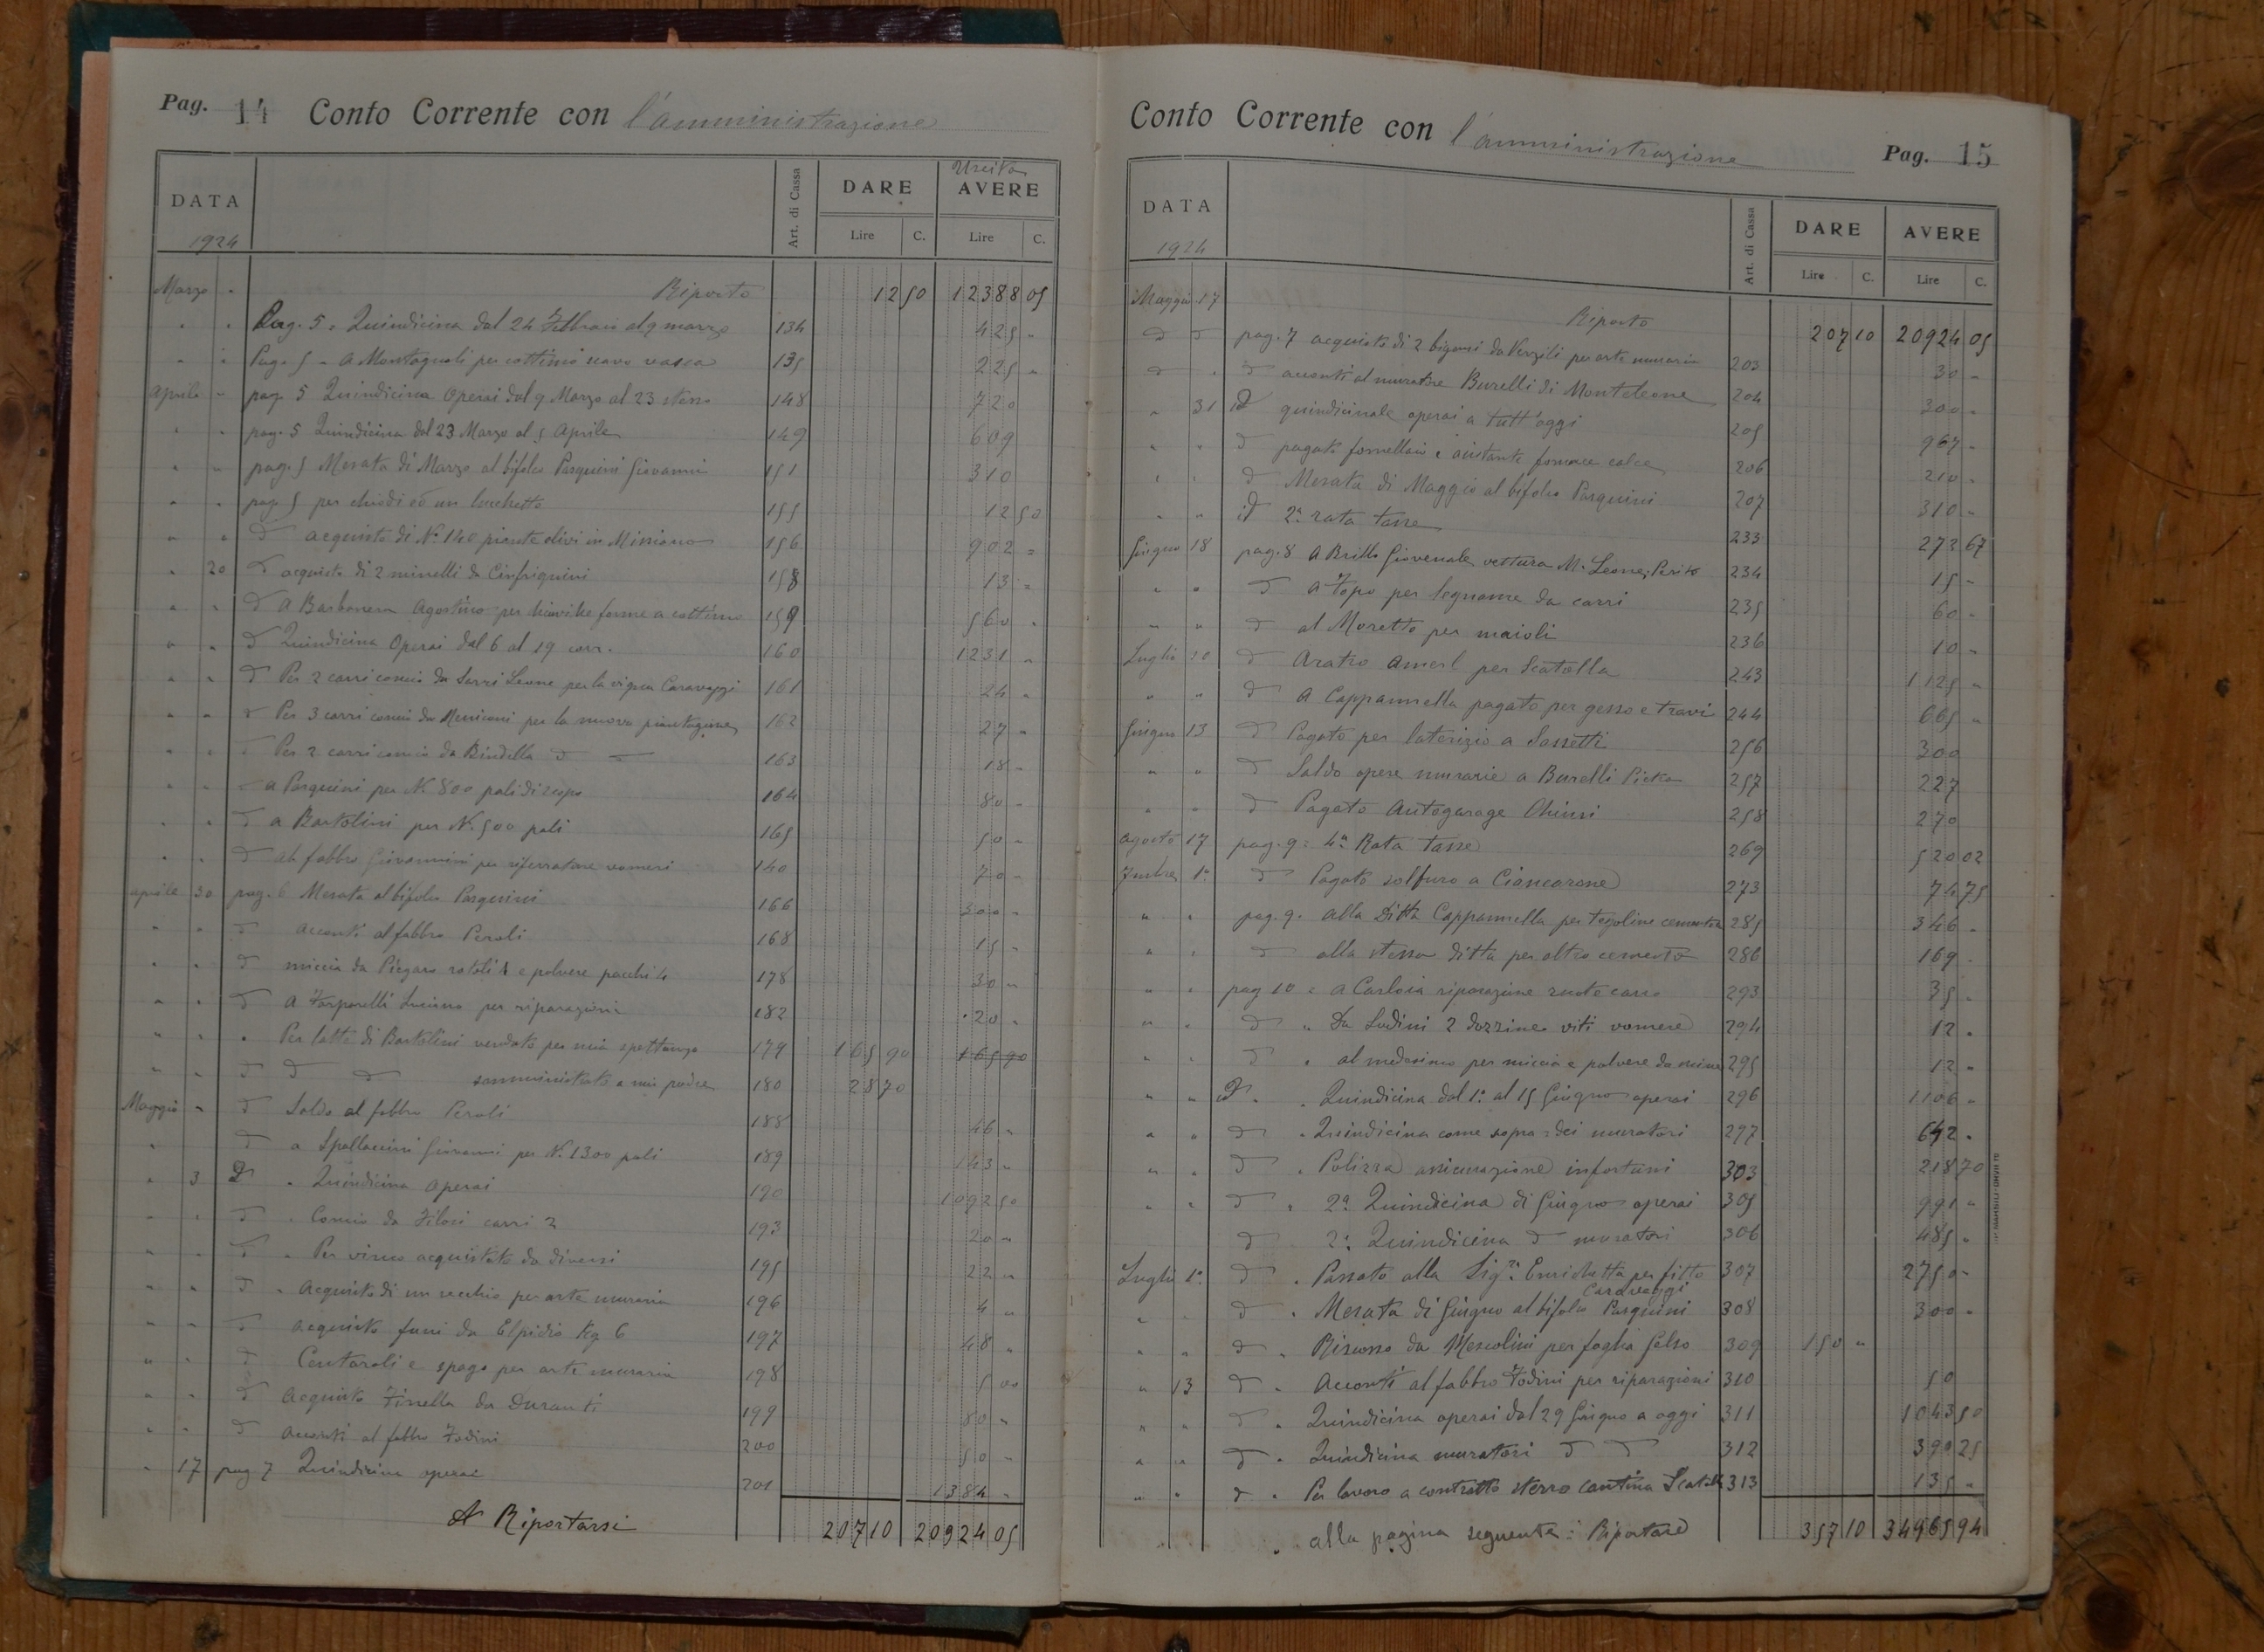 Pag. 14 Conto Corrente con l'amministrazione
DATA Art. di Cassa DARE Uscita AVERE
1924 Lire C. Lire C.
Marzo " Riporto 12 50 12388 05
" " Pag. 5 = Quindicina dal 24 Febbraio al 9 marzo 134 425 "
" " Pag. 5 - A Montagnoli per cottimo scavo vasca 135 225 "
Aprile " pag. 5 Quindicina Operai dal 9 Marzo al 23 stesso 148 720
" " pag. 5 Quindicina dal 23 Marzo al 5 Aprile 149 609
" " pag. 5 Mesata di Marzo al bifolco Pasquini Giovanni 151 310
" " pag. 5 per chiodi ed un lucchetto 155 12 50
" " d° acquisto di N° 140 piante olivi in Missiano 156 902 =
" 20 d° acquisto di 2 minelli da Cinfrignini 158 13 "
" " d° A Barbanera Agostino per forme a cottimo 159 560 "
" " d° Quindicina Operai dal 6 al 19 corr. 160 1231 "
" " d° Per 2 carri concio da Sarri Leone per la vigna Caravaggi 161 24 "
" " d° Per 3 carri concio da Meniconi per la nuova piantagione 162 27 "
" " d° Per 2 carri concio da Bindella d° — 163 18 "
" " d° a Pasquini per N. 800 pali di 164 80 "
" " d° a Bartolini per N. 500 pali 165 50 "
" " d° al fabbro Giovannini per riferratore vomeri 140 70 "
aprile 30 pag. 6 Mesata al bifolco Pasquini 166 300 "
" " d° acconti al fabbro Peroli 168 15 "
" " d° miccia da Piegaro rotoli 1 e polvere pacchi 4 178 30 "
" " d° A Luciano per riparazioni 182 20 "
" " " Per latte di Bartolini venduto per mia spettanza 179 165 90 165 90
" " d° d° d° somministrato a mio padre 180 28 70
Maggio " d° Saldo al fabbro Peroli 188 46 "
" d° a Spallaccini Giovanni per N. 1300 pali 189 143 "
" 3 d° " Quindicina operai 190 1092 50
" " d° " Concio da Filosi carri 2 193 20 "
" " d° " Per acquistato da diversi 195 22 "
" " d° " Acquisto di un secchio per arte muraria 196 4 "
" " d° acquisto funi da Elpidio Kg 6 197 48 "
" " d° Centaroli e spago per arte muraria 198 5 00
" " d° Acquisto da Duranti 199 80 "
" " d° acconti al fabbro Fodini 200 50 "
" 17 pag 7 Quindicina operai 201 1384 "
A Riportarsi 207 10 20924 05
Conto Corrente con l'amministrazione Pag. 15
DATA Art. di Cassa DARE AVERE
1924 Lire C. Lire C.
Maggio 17 Riporto 207 10 20924 05
d° d° pag. 7 acquisto di 2 bigonzi da Verzili per arte muraria 203 30 "
d° " d° acconti al muratore Burelli di Monteleone 204 300 "
" 31 d° quindicinale operai a tutt'oggi 205 967 "
" " d° pagato fornellaio e aiutante fornace calce 206 210 "
" " d° Mesata di Maggio al bifolco Pasquini 207 310 "
" " d° 2ª rata tasse 233 273 67
Giugno 18 pag. 8 A Brillo Giovenale vettura M. Leone, Perito 234 15 "
" " d° a Topo per legname da carri 235 60 "
" " d° al Moretto per maioli 236 10 "
Luglio 10 d° Aratro Amerl per Scatolla 243 1125 "
" " d° A Cappannella pagato per gesso e travi 244 665 "
Giugno 13 d° Pagato per laterizio a Sassetti 256 300
" " d° Saldo opere murarie a Burelli 257 227
" " d° Pagato Autogarage Chiusi 258 270
agosto 17 pag. 9 = 4ª Rata tasse 269 520 02
7mbre 1° d° Pagato solfuro a Ciancarone 273 74 75
" " pag. 9. alla Ditta Cappannella per tegoline cemento 285 346 "
" " d° alla stessa ditta per altro cemento 286 169 "
" " pag 10 = a Carloia riparazione ruote carro 293 35 "
" " d° " Da Ludini 2 dozzine viti vomere 294 12 "
" " d° " al medesimo per miccia e polvere da mine 295 12 "
" " d° " Quindicina dal 1° al 15 Giugno operai 296 1106 "
" " d° " Quindicina come sopra = dei muratori 297 642 "
" " d° " Polizza assicurazione infortuni 303 218 70
" " d° " 2ª Quindicina di Giugno operai 305 991 "
d° 2ª Quindicina d° muratori 306 485 "
Luglio 1° d° " Passato alla Sigra Enrichetta per fitto 307 2750 "
Caravaggi
" " d° " Mesata di Giugno al bifolco Pasquini 308 300 "
" " d° " Riscosso da Mescolini per foglia Gelso 309 150 "
" 13 d° " Acconti al fabbro Fodini per riparazioni 310 50
" " d° " Quindicina operai dal 29 Giugno a oggi 311 1043 50
" " d° " Quindicina muratori d° d° 312 390 25
" " d° " Per lavoro a contratto sterro cantina 313 135 "
alla pagina seguente : Riportare 357 10 34965 94